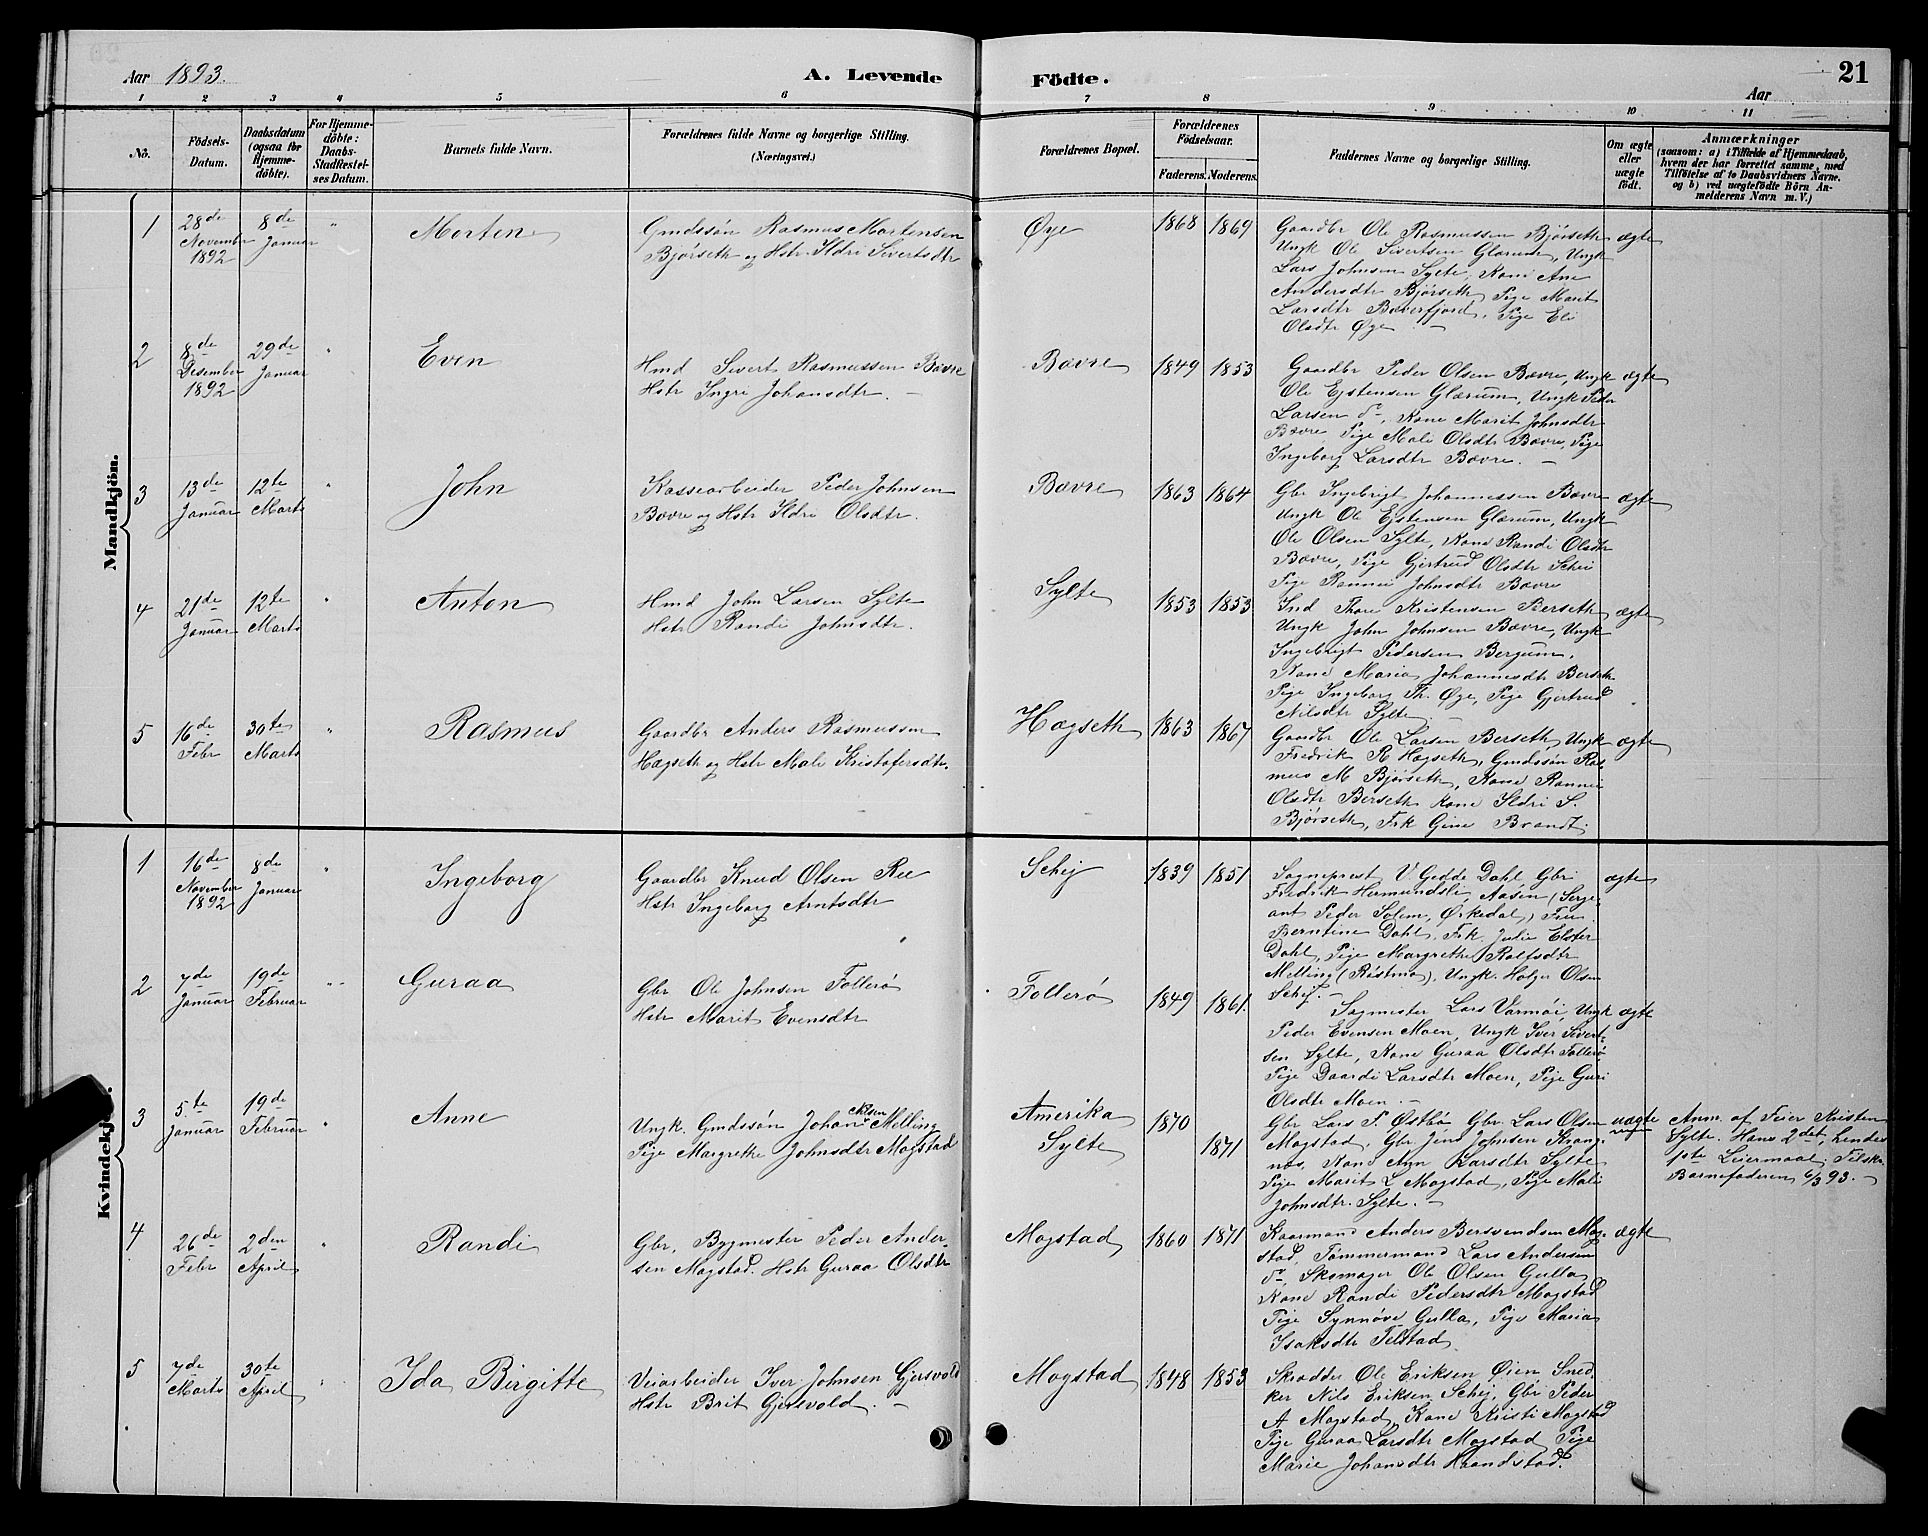 Aar 1893.
A. Levende
Födte.
21
Aar
1 2 3 4 5 6 7 8 9 10 11
Nö.
Födsels-
Datum.
Daabsdatum
(ogsaa for
Hjemme-
döbte).
For Hjemme-
döbte:
Daabs-
Stadfæstel-
ses Datum.
Barnets fulde Navn.
Forældrenes fulde Navne og borgerlige Stilling.
(Næringsvei.)
Forældrenes Bopæl.
Forældrenes
Födselsaar.
Faderens. Moderens.
Faddernes Navne og borgerlige Stilling.
Om ægte
eller
uægte
født.
Anmærkninger
(saasom: a) i Tilfælde af Hjemmedaab,
hvem der har forrettet samme, med
Tilföielse af to Daabsvidners Navne.
og b) ved uægtefödte Börn An-
melderens Navn m. V.)
Mandkjön.
1
28de
November
1892
8de
Januar
"
Morten
Gmdssön Rasmus Mortensen
Bjørseth og Hstr Ildri Sivertsdtr
Øye
1868 1869
Gaardbr Ole Rasmussen Bjørseth
Ungk Ole Sivertsen Glærum, Ungk
Lars Johnsen Sylte, Kone Ane
Andersdtr Bjørseth, Pige Marit
Larsdtr Bæverfjord, Pige Eli
Olsdtr Øye. —
ægte
2
8de
Desember
1892
29de
Januar
"
Even
Hmd Sivert Rasmussen Bævre
Hstr Ingri Johansdtr. —
Bævre
1849 1853
Gaardbr Peder Olsen Bævre, Ungk
Ole Ejstensen Glærum, Ungk Peder
Larsen do, Kone Marit Johnsdtr
Bævre Pige Mali Olsdtr Bævre, Pige
Ingeborg Larsdtr Bævre. —
ægte
3
13de
Januar
12te
Marts
"
John
Kassearbeider Peder Johnsen
Bævre og Hstr Ildri Olsdtr.
Bævre
1863 1864
Gbr Ingebrigt Johannessen Bævre
Ungk Ole Ejstensen Glærum, Ungk
Ole Olsen Sylte, Kone Randi Olsdtr
Bævre, Pige Gjertrud Olsdtr Schei
Pige Rannei Johnsdtr Bævre
ægte
4
21de
Januar
12te
Marts
"
Anton
Hmd John Larsen Sylte
Hstr Randi Johnsdtr.
Sylte
1853 1853
Ind Thore Kristensen Berseth
Ungk John Johnsen Bævre, Ungk
Ingebrigt Pedersen Bergum,
Kone Maria Johannesdt Berseth
Pige Ingeborg Th. Øye, Pige Gjertrud
Nilsdtr Sylte
ægte
5
16de
Febr
30te
Marts
"
Rasmus
Gaardbr Anders Rasmussen
Hægseth og Hstr Mali Kristofersdtr.
Hægseth
1863 1867
Gaardbr Ole Larsen Berseth, Ungk
Fredrik R Hægseth, Gmdssön Ras-
mus M Bjørseth, Kone Rannei
Olsdtr Berseth Kone Ildri S.
Bjørseth, Frk Gine Brandt.
ægte
Kvindekjön.
1
16de
November
1892
8de
Januar
"
Ingeborg
Gaardbr Knud Olsen Ree
Hstr Ingeborg Arntsdtr
Schej
1839 1851
Sogneprest V Gedde Dahl Gbr
Fredrik Hermundsli, Aasen (Serge-
ant Peder Solem, Ørkedal) Fru
Berntine Dahl, Frk. Julie Elster
Dahl, Pige Margrethe Rolfsdtr
Melling (Røstmo), Ungk. Holger Olsen
Schej. —
ægte
2
7de
Januar
19de
Februar
"
Guraa
Gbr Ole Johnsen Follerö
Hstr Marit Evensdtr
Follerö
1849 1861.
Sagmester Lars Varmøi, Ungk
Peder Evensen Moen, Ungk Iver Sivert-
sen Sylte, Kone Guraa Olsdtr Follerö
Pige Daardi Larsdtr Moen, Pige Guri
Olsdtr Moen. —
ægte
3
5te
Januar
19de
Februar
"
Anne
Ungk. Gmdssön Johan Nilsen Melling
Pige Margrethe Johnsdtr Mogstad
Amerika
Sylte
1870
1871
Gbr Lars P. Østbö Gbr. Lars Olsen
Mogstad, Gbr Jens Johnsen Krang-
næs, Kone Ann Larsdtr Sylte
Pige Marit L Mogstad, Pige Mali
Johnsdtr Sylte. —
uægte
Anm. af Feier Kristen
Sylte. Hans 2det, hendes
1ste Leiermaal. Tilskr.
Barnefaderen 6/3 93. —
4
26de
Febr
2den
April
"
Randi
Gbr, Bygmester Peder Ander-
sen Mogstad. Hstr Guraa Olsdtr
Mogstad
1860 1871
Kaarmand Anders Berssvendsen Mog-
stad, Tømmermand Lars Andersen
do, Skomager Ole Olsen Gulla
Kone Randi Pedersdtr Mogstad
Pige Synnöve Gulla, Pige Maria
Isaksdtr Telstad
ægte
5
7de
Marts
30te
April
"
Ida Birgitte
Veiarbeider Iver Johnsen Gjersvold
Hstr Brit Gjersvold. —
Mogstad
1848 1853
Skrædder Ole Eriksen Øien Sned-
ker Nils Eriksen Schej, Gbr Peder
A Mogstad, Kone Kristi Mogstad
Pige Guraa Larsdtr Mogstad Pige
Marie Johansdtr Haandstad.